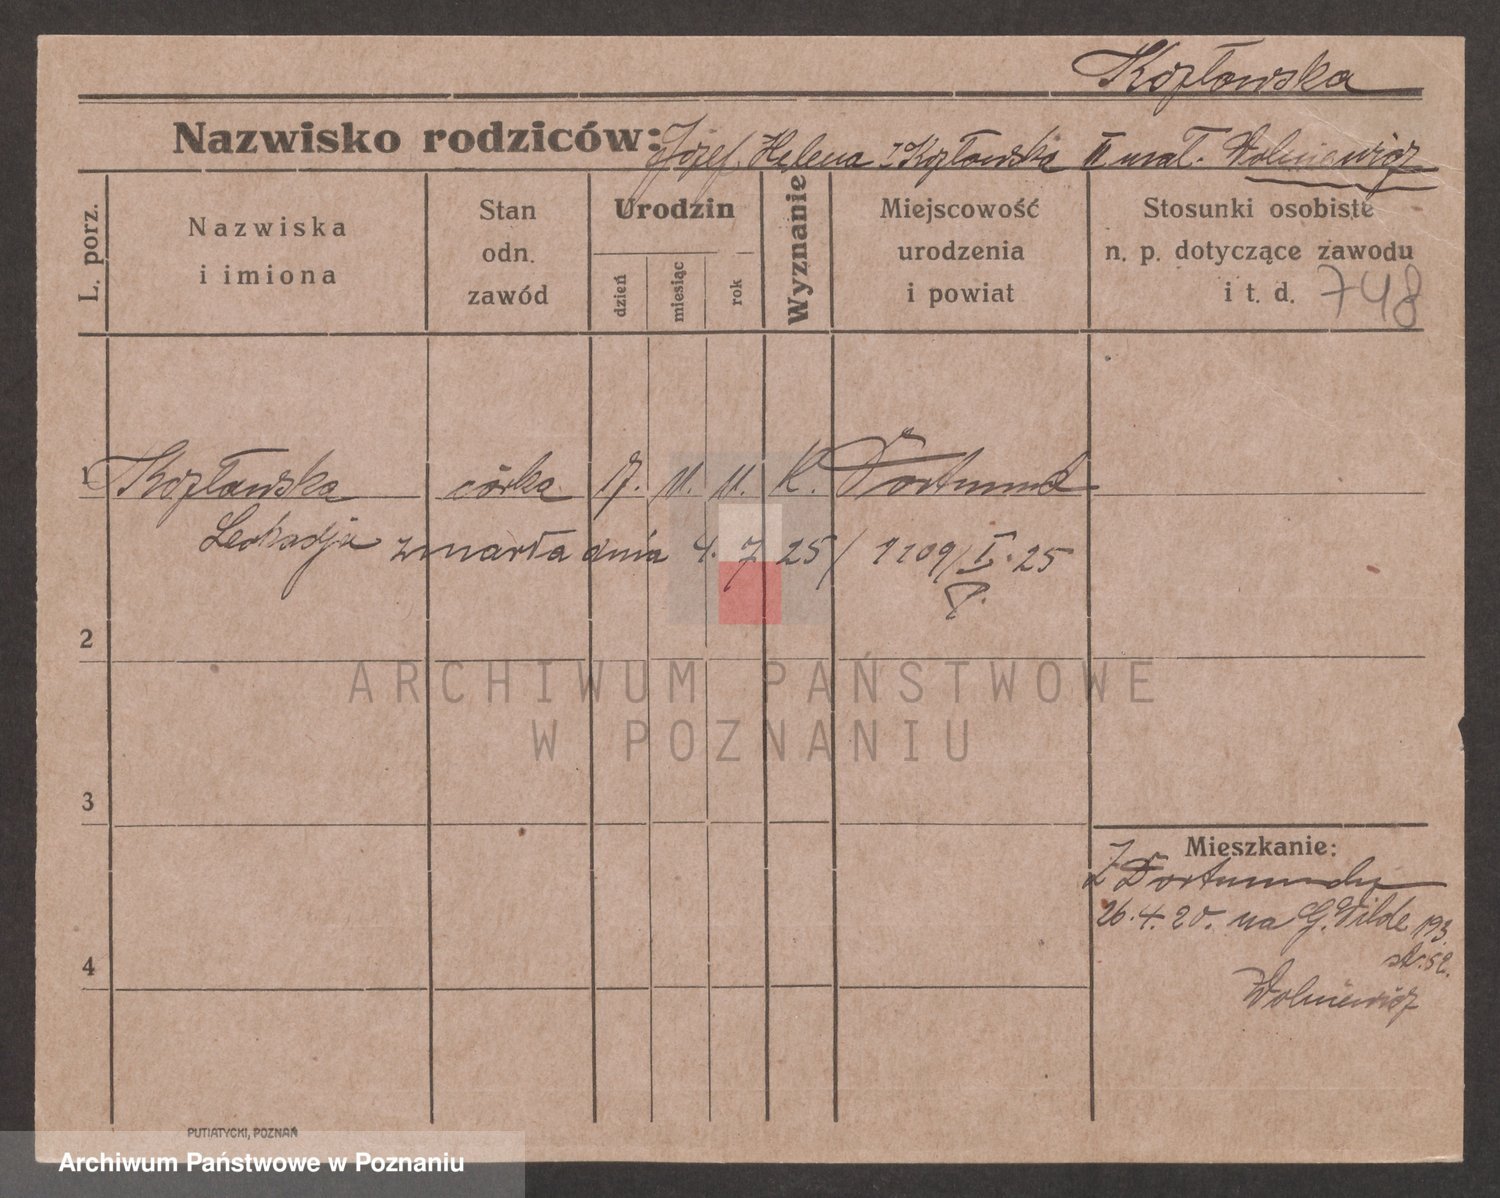 Kozłowska
Nazwisko rodziców: Józef Helena Kozłowska II mał. Wolniewicz
L. porz.
Nazwiska
i imiona
Stan
odn.
zawód
Urodzin
dzień
miesiąc
rok
Wyznanie
Miejscowość
urodzenia
i powiat
Stosunki osobiste
n. p. dotyczące zawodu
i t. d. 748
1 Kozłowska córka 17. 11. 11. K. Dortmund
Leokadja zmarła dnia 4. 7 25 / 1209/I. 25
2
3
4
Mieszkanie:
Z Dortmundu
26.4.20. na G. Wilde 193
str. 52.
Wolniewicz
PUTIATYCKI, POZNAŃ
ARCHIWUM PAŃSTWOWE
W POZNANIU
Archiwum Państwowe w Poznaniu